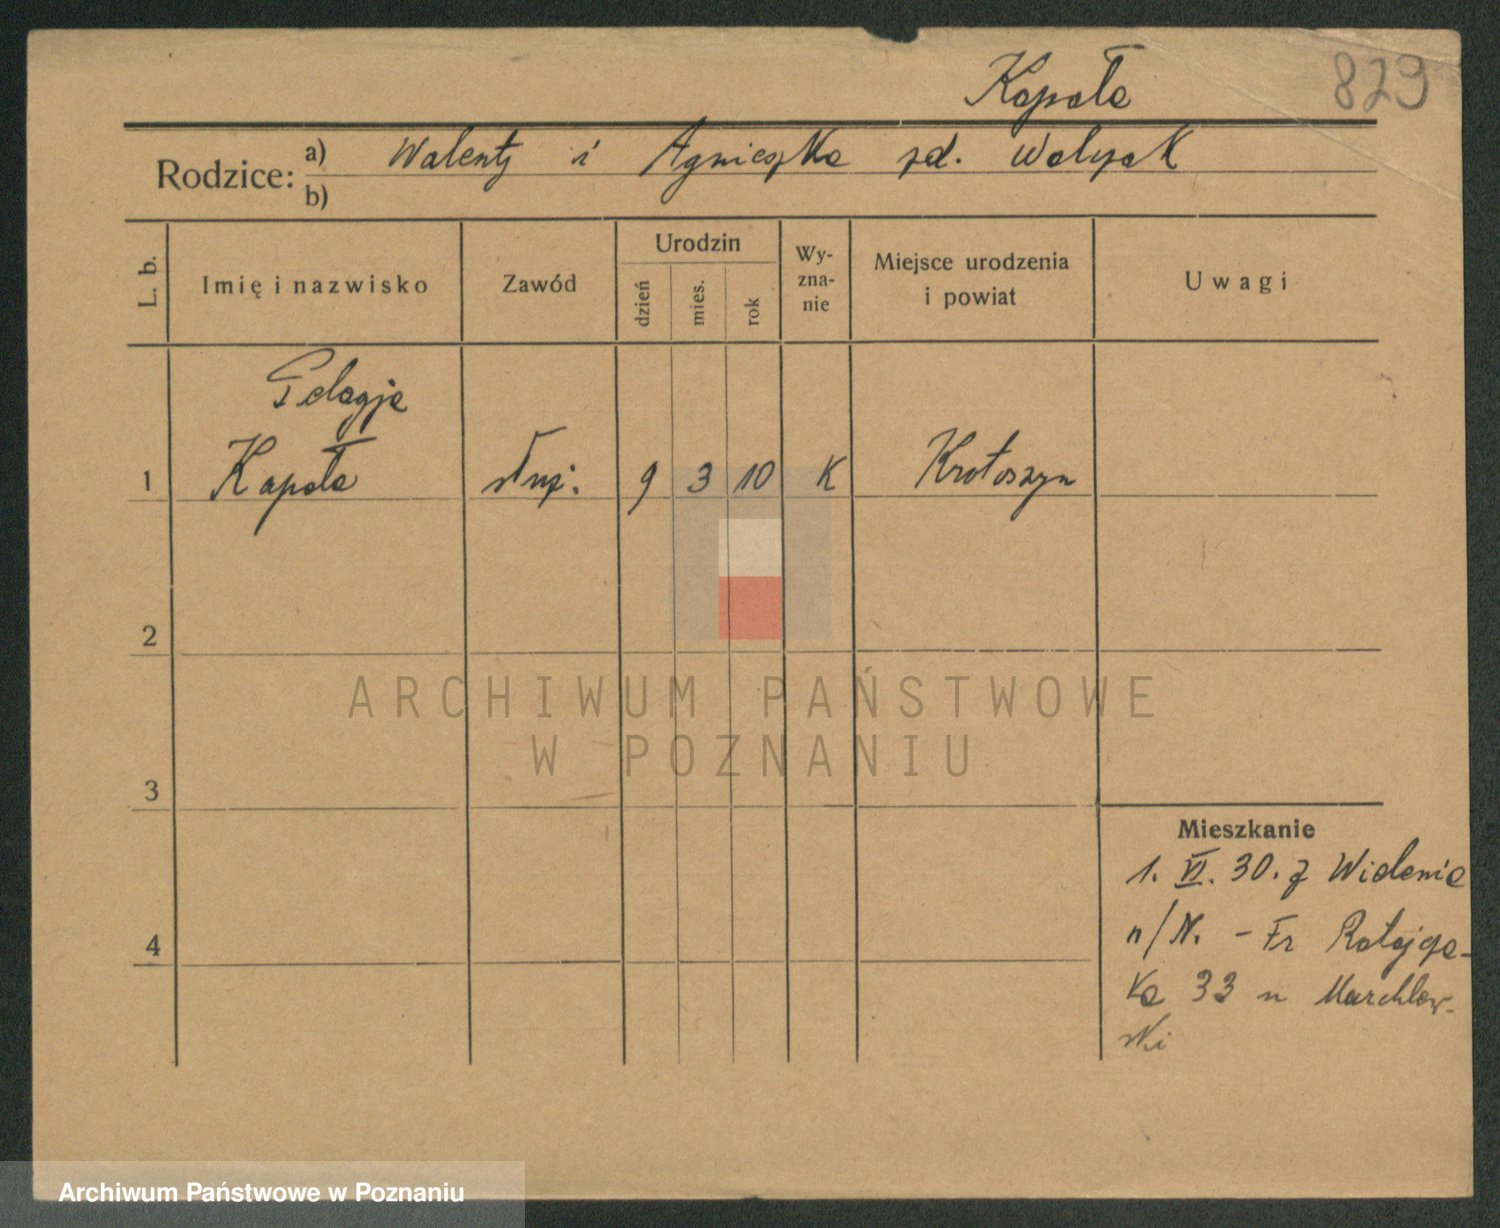 Kapała 829
Rodzice: a) Walenty i Agnieszka zd. Walczak
b)
L. b. Imię i nazwisko Zawód Urodzin dzień mies. rok Wy-zna-nie Miejsce urodzenia i powiat Uwagi
Pelagja
1 Kapała służ. 9 3 10 K Krotoszyn
2
ARCHIWUM PAŃSTWOWE
W POZNANIU
3
Mieszkanie
1. VI. 30. z
4 n/N. - Fr Ratajcza-
ka 33 u Marchlew-
ski
Archiwum Państwowe w Poznaniu